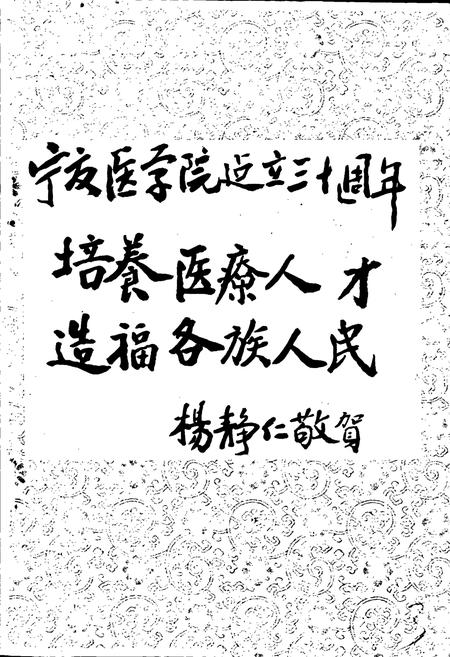 宁夏医学院建立三十週年
培養医療人才
造福各族人民
楊静仁敬賀